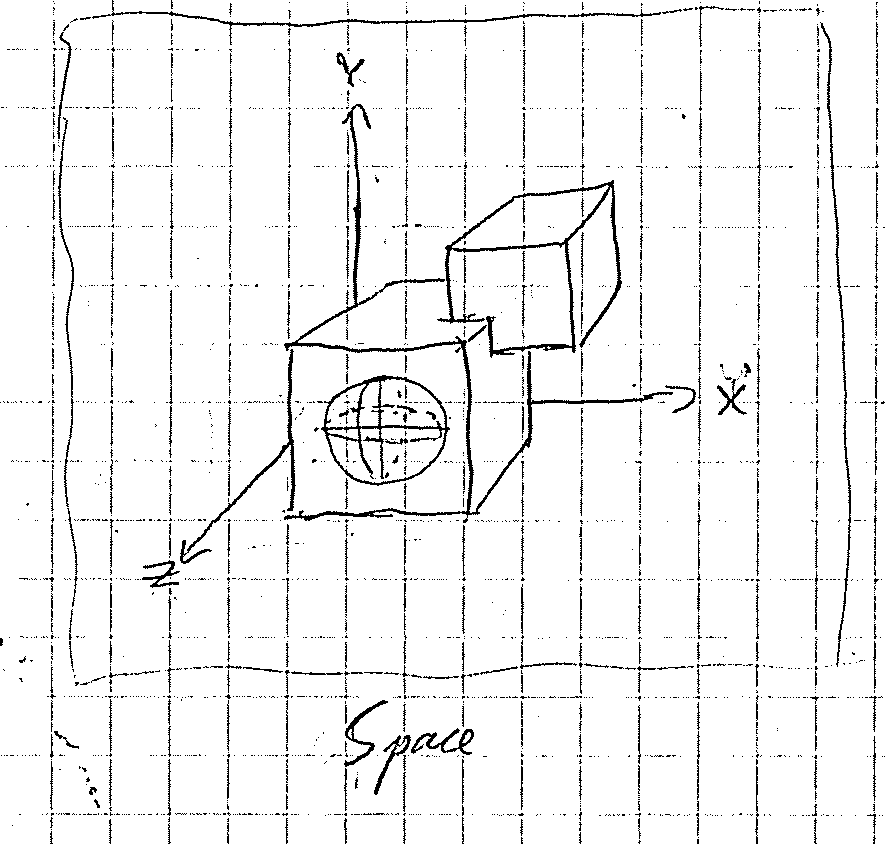 Y
X
Z
Space